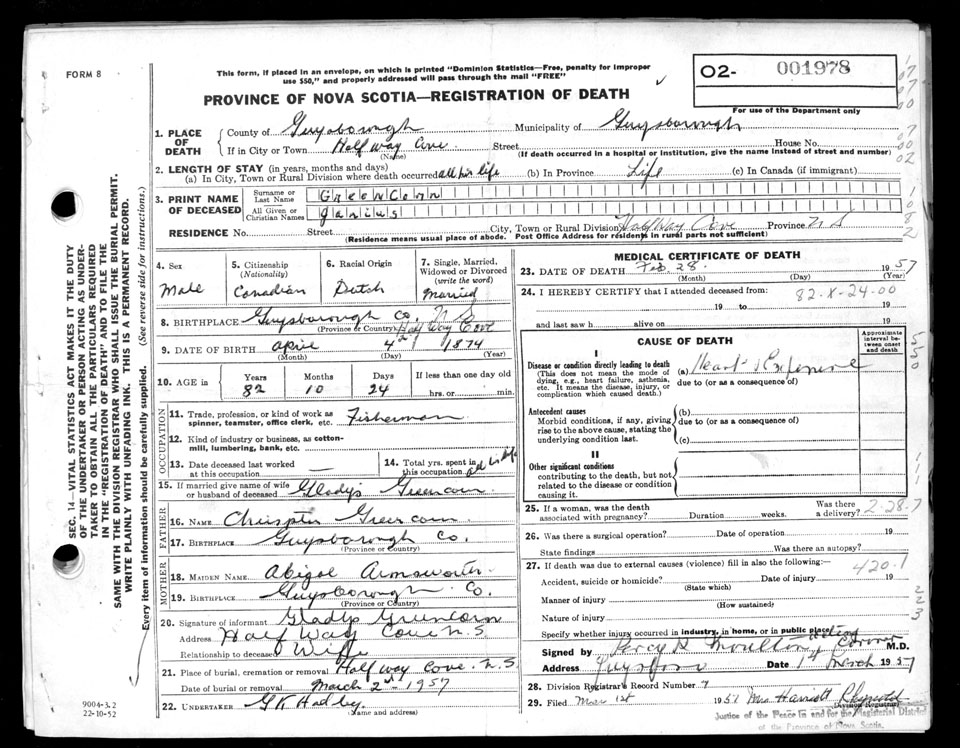 FORM 8
This form, if placed in an envelope, on which is printed "Dominion Statistics—Free, penalty for improper
use $50," and properly addressed will pass through the mail "FREE"
O2- 001978
For use of the Department only
PROVINCE OF NOVA SCOTIA—REGISTRATION OF DEATH
1. PLACE OF DEATH { County of Guysborough Municipality of Guysborough
If in City or Town Half way Cove (Name) Street House No.
(If death occurred in a hospital or institution, give the name instead of street and number)
2. LENGTH OF STAY (in years, months and days)
(a) In City, Town or Rural Division where death occurred all his life (b) In Province Life (c) In Canada (if immigrant)
3. PRINT NAME OF DECEASED { Surname or Last Name GreenCorn
All Given or Christian Names Janius
RESIDENCE No. Street City, Town or Rural Division Half Way Cove Province N S
(Residence means usual place of abode. Post Office Address for residents in rural parts not sufficient)
4. Sex Male
5. Citizenship (Nationality) Canadian
6. Racial Origin Dutch
7. Single, Married, Widowed or Divorced (write the word) Married
8. BIRTHPLACE Guysborough Co. N S
(Province or Country) Half Way Cove
9. DATE OF BIRTH April (Month) 4 (Day) 1874 (Year)
10. AGE in Years 82 Months 10 Days 24 If less than one day old hrs. or min.
OCCUPATION
11. Trade, profession, or kind of work as spinner, teamster, office clerk, etc. Fisherman
12. Kind of industry or business, as cotton-mill, lumbering, bank, etc.
13. Date deceased last worked at this occupation —
14. Total yrs. spent in this occupation all his life
15. If married give name of wife or husband of deceased Gladys Greencorn
FATHER
16. NAME Greencorn
17. BIRTHPLACE Guysborough Co.
(Province or Country)
MOTHER
18. MAIDEN NAME Abigal Armsworth
19. BIRTHPLACE Guysborough Co.
(Province or Country)
20. Signature of informant Gladys Greencorn
Address Half Way Cove N.S.
Relationship to deceased Wife
21. Place of burial, cremation or removal Half way Cove N.S
Date of burial or removal March 2nd 1957
22. UNDERTAKER G K Hadley
(Name and address)
MEDICAL CERTIFICATE OF DEATH
23. DATE OF DEATH Feb 28. 1957
(Month) (Day) (Year)
24. I HEREBY CERTIFY that I attended deceased from: 82-X-24-00
19 to 19
and last saw h alive on 19
CAUSE OF DEATH
Approximate interval between onset and death
I
Disease or condition directly leading to death
(This does not mean the mode of dying, e.g., heart failure, asthenia, etc. It means the disease, injury, or complication which caused death.)
(a) Heart
due to (or as a consequence of)
Antecedent causes
Morbid conditions, if any, giving rise to the above cause, stating the underlying condition last.
(b)
due to (or as a consequence of)
(c)
II
Other significant conditions
contributing to the death, but not related to the disease or condition causing it.
25. If a woman, was the death associated with pregnancy? Duration weeks. Was there a delivery? 2-28-7
26. Was there a surgical operation? Date of operation 19
State findings Was there an autopsy?
27. If death was due to external causes (violence) fill in also the following:— 420.1
Accident, suicide or homicide? Date of injury 19
(State which)
Manner of injury
(How sustained)
Nature of injury
Specify whether injury occurred in industry, in home, or in public place
Signed by Percy R Moulton Acting Coroner M.D.
Address Guysboro Date 1st March 1957
28. Division Registrar's Record Number 7
29. Filed Mar 1st 1957 Mrs Harriett
Division Registrar
Justice of the Peace in and for the Magisterial District
of the Province of Nova Scotia.
SEC. 14—VITAL STATISTICS ACT MAKES IT THE DUTY
OF THE UNDERTAKER OR PERSON ACTING AS UNDER-
TAKER TO OBTAIN ALL THE PARTICULARS REQUIRED
IN THE "REGISTRATION OF DEATH" AND TO FILE THE
SAME WITH THE DIVISION REGISTRAR WHO SHALL ISSUE THE BURIAL PERMIT.
WRITE PLAINLY WITH UNFADING INK. THIS IS A PERMANENT RECORD.
Every item of information should be carefully supplied. (See reverse side for instructions.)
9004-3.2
22-10-52